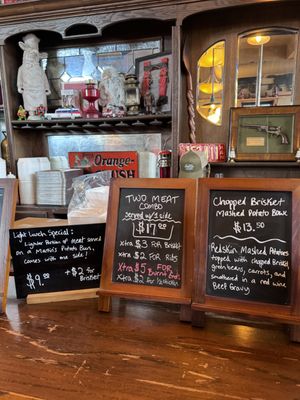 Orange-
USH
Light Lunch Special:
Lighter Portion of meat served
on a Martin's Potato Bun
comes with one side!
$9.00
+ $2 for
Brisket
TWO MEAT
COMBO
Served w/1 side
$17.00
Xtra $3 FOR Brisket
Xtra $2 FOR Ribs
Xtra $5 FOR
Burnt Ends
Xtra $2 for
Chopped Brisket
Mashed Potato Bowl
$13.50
Redskin Mashed Potatoes
topped with chopped Brisket,
green beans, carrots, and
smothered in a red wine
Beef Gravy